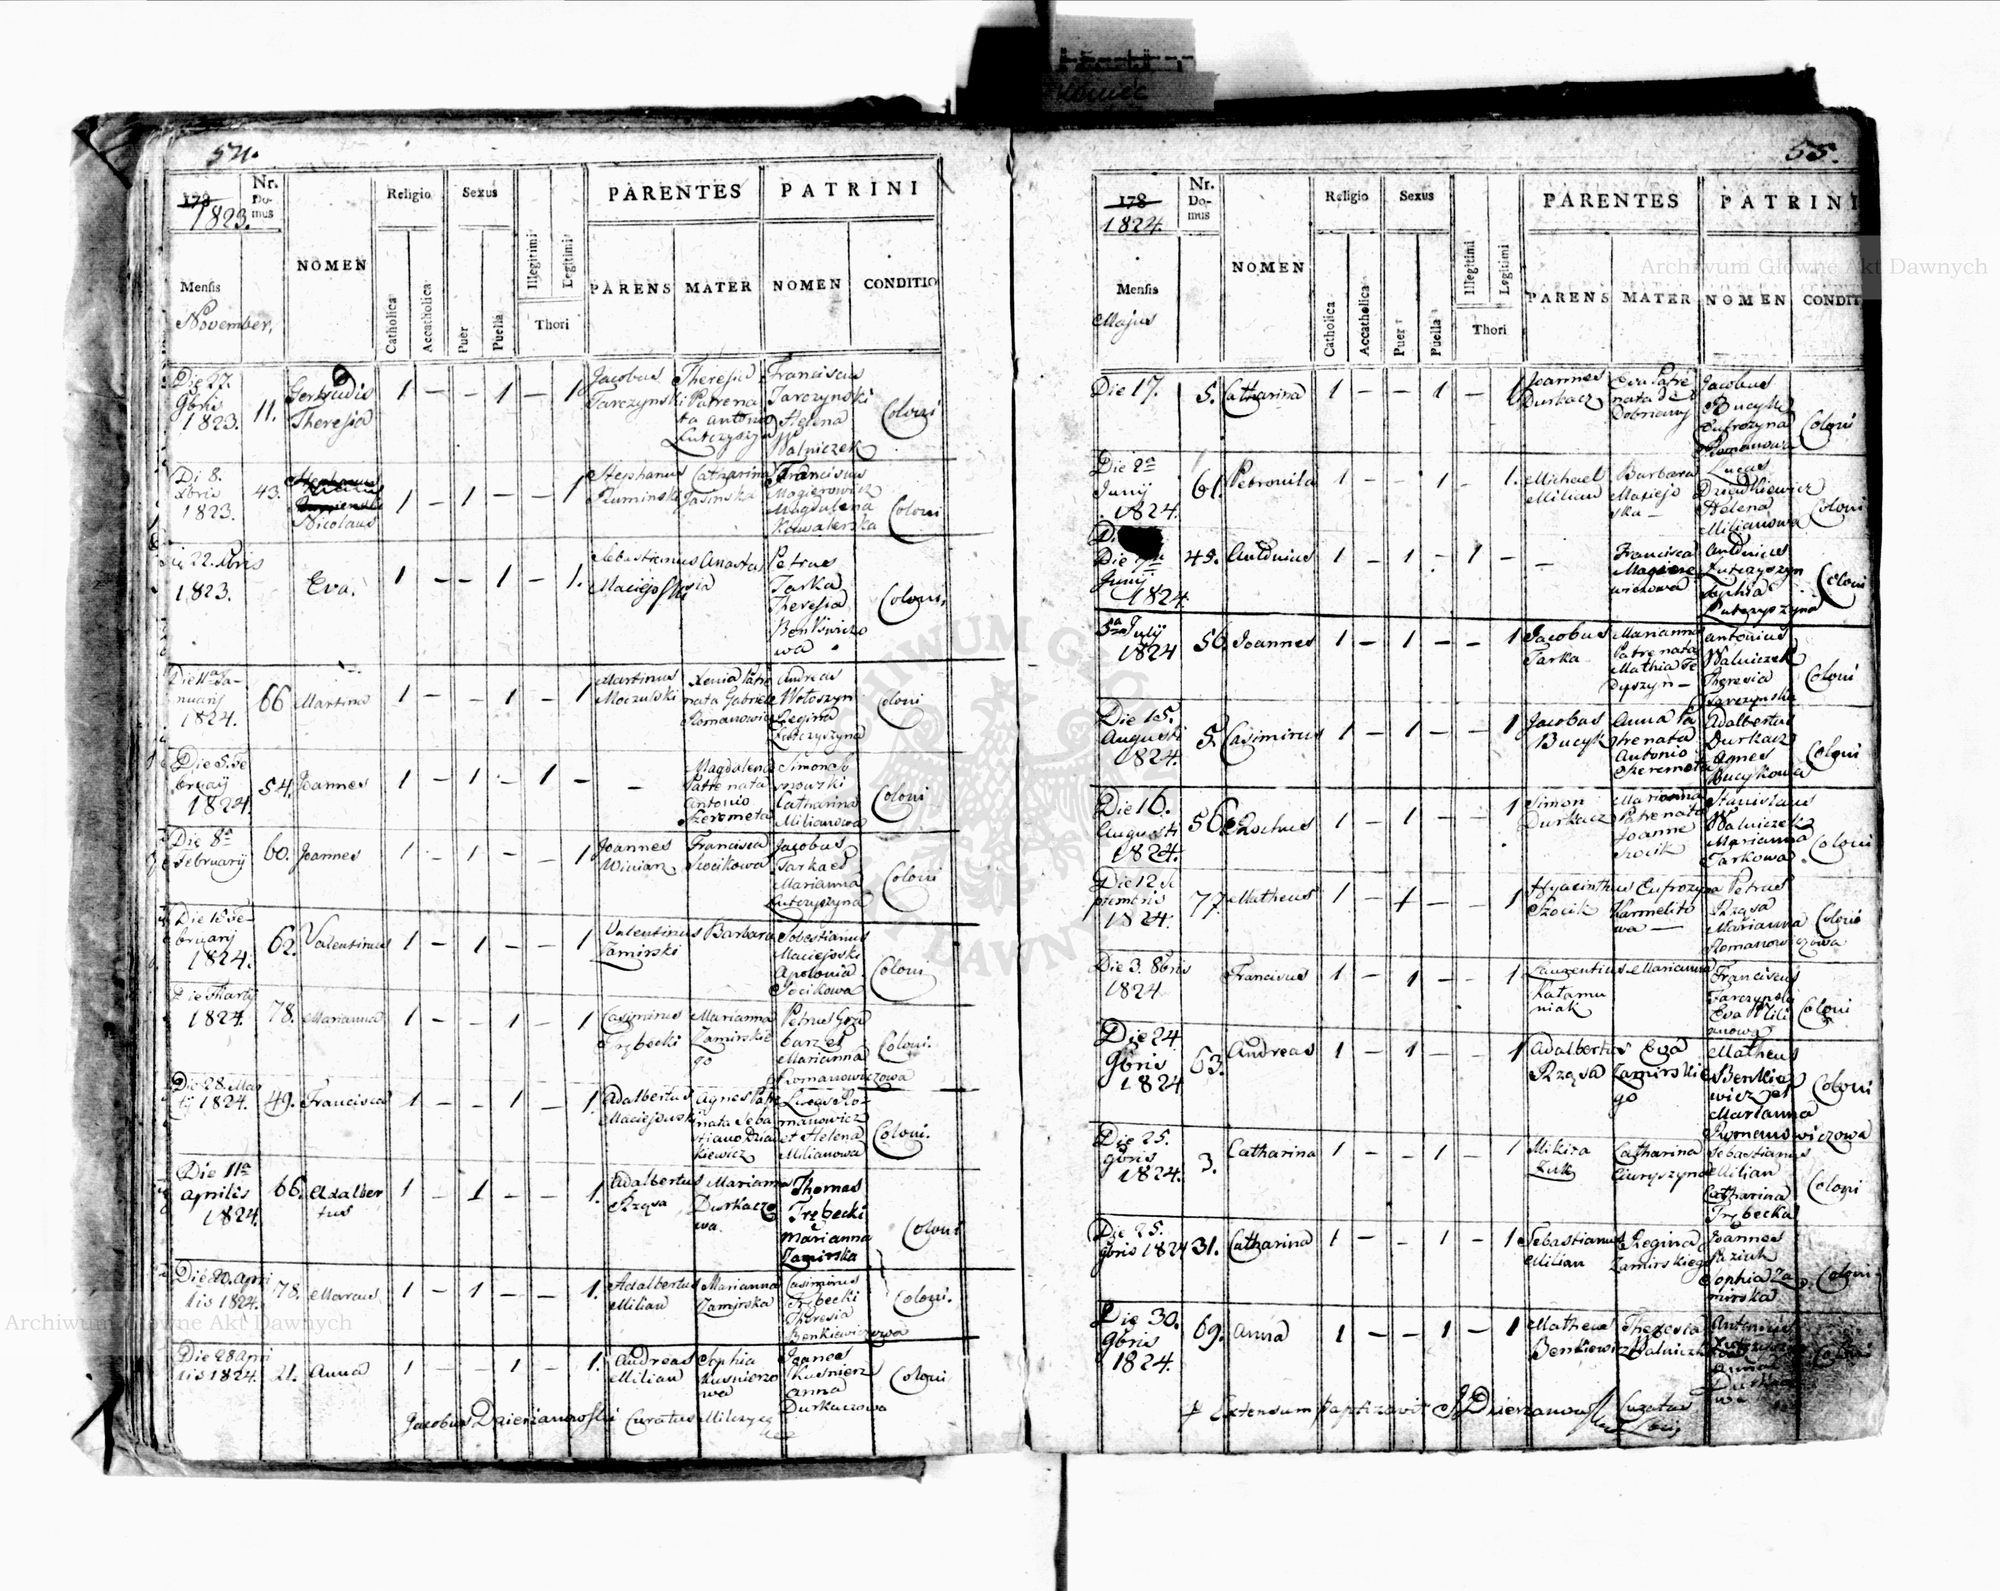 54.
178
1823.
Nr. Domus
NOMEN
Religio
Sexus
PARENTES
PATRINI
Mensis
November,
Catholica
Accatholica
Puer
Puella
Illegitimi
Legitimi
Thori
PARENS
MATER
NOMEN
CONDITIO
Die 27. 9bris 1823. 11. Gertrudis Theresia 1 — — 1 — 1 Jacobus Tarczynski Theresia Patre nata Antonio Lutczyszyn Franciscus Tarczynski Helena Walniczek Coloni
Di 8. Xbris 1823. 43. Nicolaus 1 — 1 — — 1 Stephanus Ruminski Catharina Jasinska Franciscus Magierowicz Magdalena Kowalerska Coloni
Die 22. Xbris 1823. Eva. 1 — — 1 — 1. Sebastianus Maciejoski Anastasia Petrus Tarka Theresia Benkiwiczowa Coloni,
Die 11a Januarij 1824. 66 Martina 1 — — 1 — 1 Martinus Moczulski Xenia Patre nata Gabriele Romanowicz Andreas Wołoszyn Regina Lutczyszyna Coloni
Die 5. Februarij 1824 54. Joannes 1 — 1 — 1 — — Magdalena Patre nata Antonio Szeremeta Simon Catharina Milianowa Coloni
Die 8a Februarij 60. Joannes 1 — 1 — — 1 Joannes Winiar Francisca Socikowa Jacobus Tarka et Marianna Lutczyszyna Coloni
Die 15 Februarij 1824. 62. Valentinus 1 — 1 — — 1 Valentinus Zamirski Barbara Sobestianus Maciejoski Apolonia Socikowa Coloni
Die Martij 1824. 78. Marianna 1 — — 1 — 1 Casimirus Trębecki Marianna Zamirskiego Petrus et Marianna Romanowiczowa Coloni.
Die 28. Martij 1824. 49. Francisca 1 — — 1 — 1. Adalbertus Maciejouski Agnes Patre nata Sebastiano Dziadkiewicz Lucas Romanowicz et Helena Milianowa Coloni.
Die 11a Aprilis 1824. 66. Adalbertus 1 — 1 — — 1. Adalbertus Rząsa Marianna Durkaczowa Thomas Trębecki Marianna Zamirska Coloni
Die 20. Aprilis 1824. 78. Marcus 1 — 1 — — 1. Adalbertus Milian Marianna Zamirska Casimirus Trębecki Theresia Benkiewiczowa Coloni.
Die 28 Aprilis 1824. 21. Anna 1 — — 1 — 1. Andreas Milian Sophia Kusnierzowa Joannes Kusnierz Anna Durkaczowa Coloni
Jacobus Dzierzanowski Curatus
55.
178
1824.
Nr. Domus
NOMEN
Religio
Sexus
PARENTES
PATRINI
Mensis
Majus
Catholica
Accatholica
Puer
Puella
Illegitimi
Legitimi
Thori
PARENS
MATER
NOMEN
CONDIT
Die 17. 5. Catharina 1 — — 1 — 1 Joannes Durkacz Eva Patre nata Jacobus Bucyk Eufrozyna Romanowa Coloni
Die 2a Junij 1824. 61. Petronila 1 — — 1 — 1. Michael Milian Barbara Maziejoska — Lucas Dziedkiewicz Helena Milianowa Coloni
Die Junij 1824 45. Antonius 1 — 1 — 1 — — Francisca Magierowiczowa Antonius Lutczyszyn Sophia Lutczyszyna Coloni
5a July 1824 56. Joannes 1 — 1 — — 1 Jacobus Tarka Marianna Patre nata Mathia Fedyszyn — Antonius Walniczek Theresia Tarczynska Coloni
Die 15. Augusti 1824. 5. Casimirus 1 — 1 — — 1 Jacobus Bucyk Anna Patre nata Antonio Szeremeta Adalbertus Durkacz Agnes Bucykowa Coloni
Die 16. Augusti 1824. 56. Rochus 1 — 1 — — 1 Simon Durkacz Marianna Patre nata Joanne Socik Stanislaus Walniczek Marianna Tarkowa. Coloni
Die 12. Septembris 1824. 77. Matheus 1 — 1 — — 1 Hyacinthus Socik Eufrozyna Karmelitowa — Petrus Rząsa Marianna Romanowiczowa Coloni
Die 3. 8bris 1824 Franciscus 1 — 1 — — 1 Laurentius Katamuniak Marianna Franciscus Tarczynski Eva Milianowa Coloni
Die 24 9bris 1824 63. Andreas 1 — 1 — — 1 Adalbertus Rząsa Eva Zamirskiego Matheus Benkiewicz et Marianna Romanowiczowa Coloni
Die 25. 9bris 1824. 3. Catharina 1 — — 1 — 1 Mikita Zuk Catharina Sebastianus Milian Catharina Trębecka Coloni
Die 25. 9bris 1824 31. Catharina 1 — — 1 — 1 Sebastianus Milian Regina Zamirskiego Joannes Sophia Zamirska. Coloni.
Die 30. 9bris 1824. 69. Anna 1 — — 1 — 1 Matheus Benkiewicz Theresia Walniczk Antonius Coloni
Extensum baptizavit J. Dzierzanowski Curatus Loci
Archiwum Główne Akt Dawnych
Archiwum Główne Akt Dawnych
ARCHIWUM GŁÓWNE AKT DAWNYCH